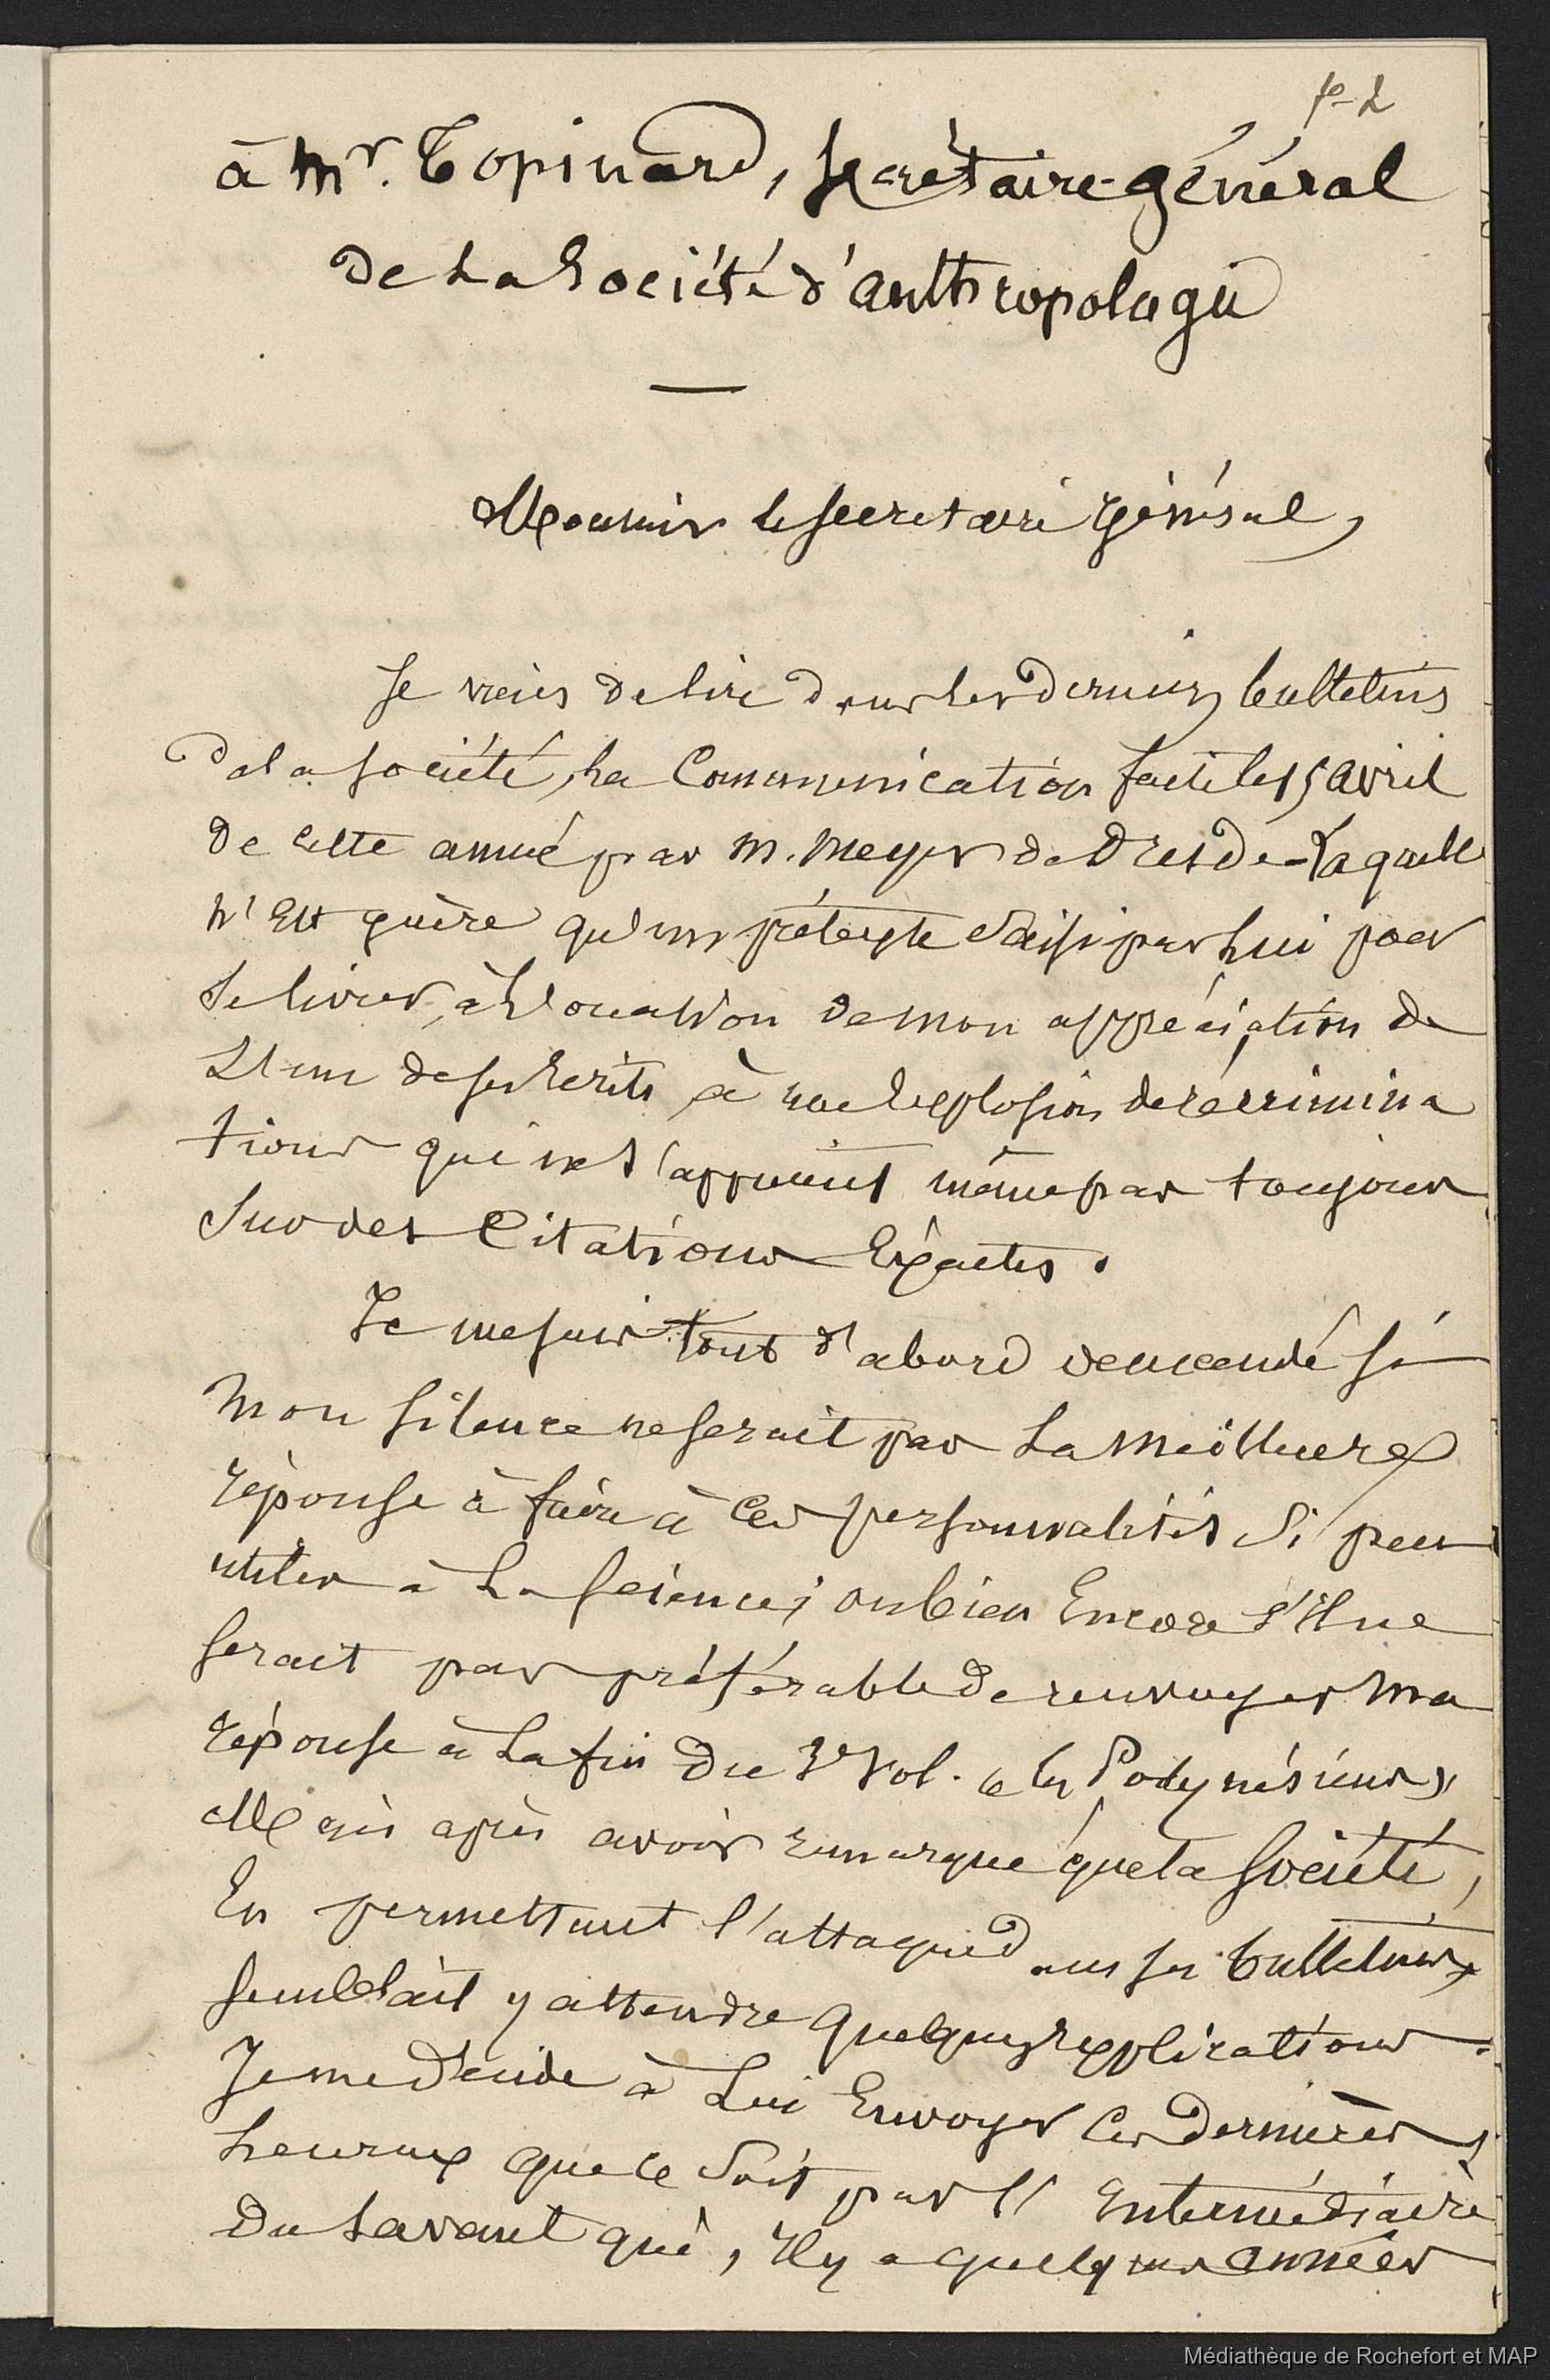 à Mr. Topinard, Secrétaire-général
de la Société d'anthropologie
Monsieur le secrétaire général,
Je viens de lire dans les derniers bulletins
de la société, la communication faite le 15 avril
de cette année par M. Meyer de Dresde - laquelle
n'est guère qu'un prétexte saisi par lui pour
se livrer, à l'occasion de mon appréciation de
l'un de ses écrits, à une explosion de récrimina
tions qui ne s'appuient même pas toujours
sur des citations exactes.
Je me suis tout d'abord demandé si
mon silence ne serait pas la meilleure
réponse à faire à ces personnalités si peu
utiles à la science; ou bien encore s'il ne
serait pas préférable de renvoyer ma
réponse à la fin du 3e vol. « les Polynésiens »
Mais après avoir remarqué que la société,
en permettant l'attaque dans ses bulletins,
semblait y attendre quelques explications.
Je me décide à lui envoyer ces dernières,
heureux que ce soit par l'entermédiaire
du savant qui, il y a quelques années
Médiathèque de Rochefort et MAP